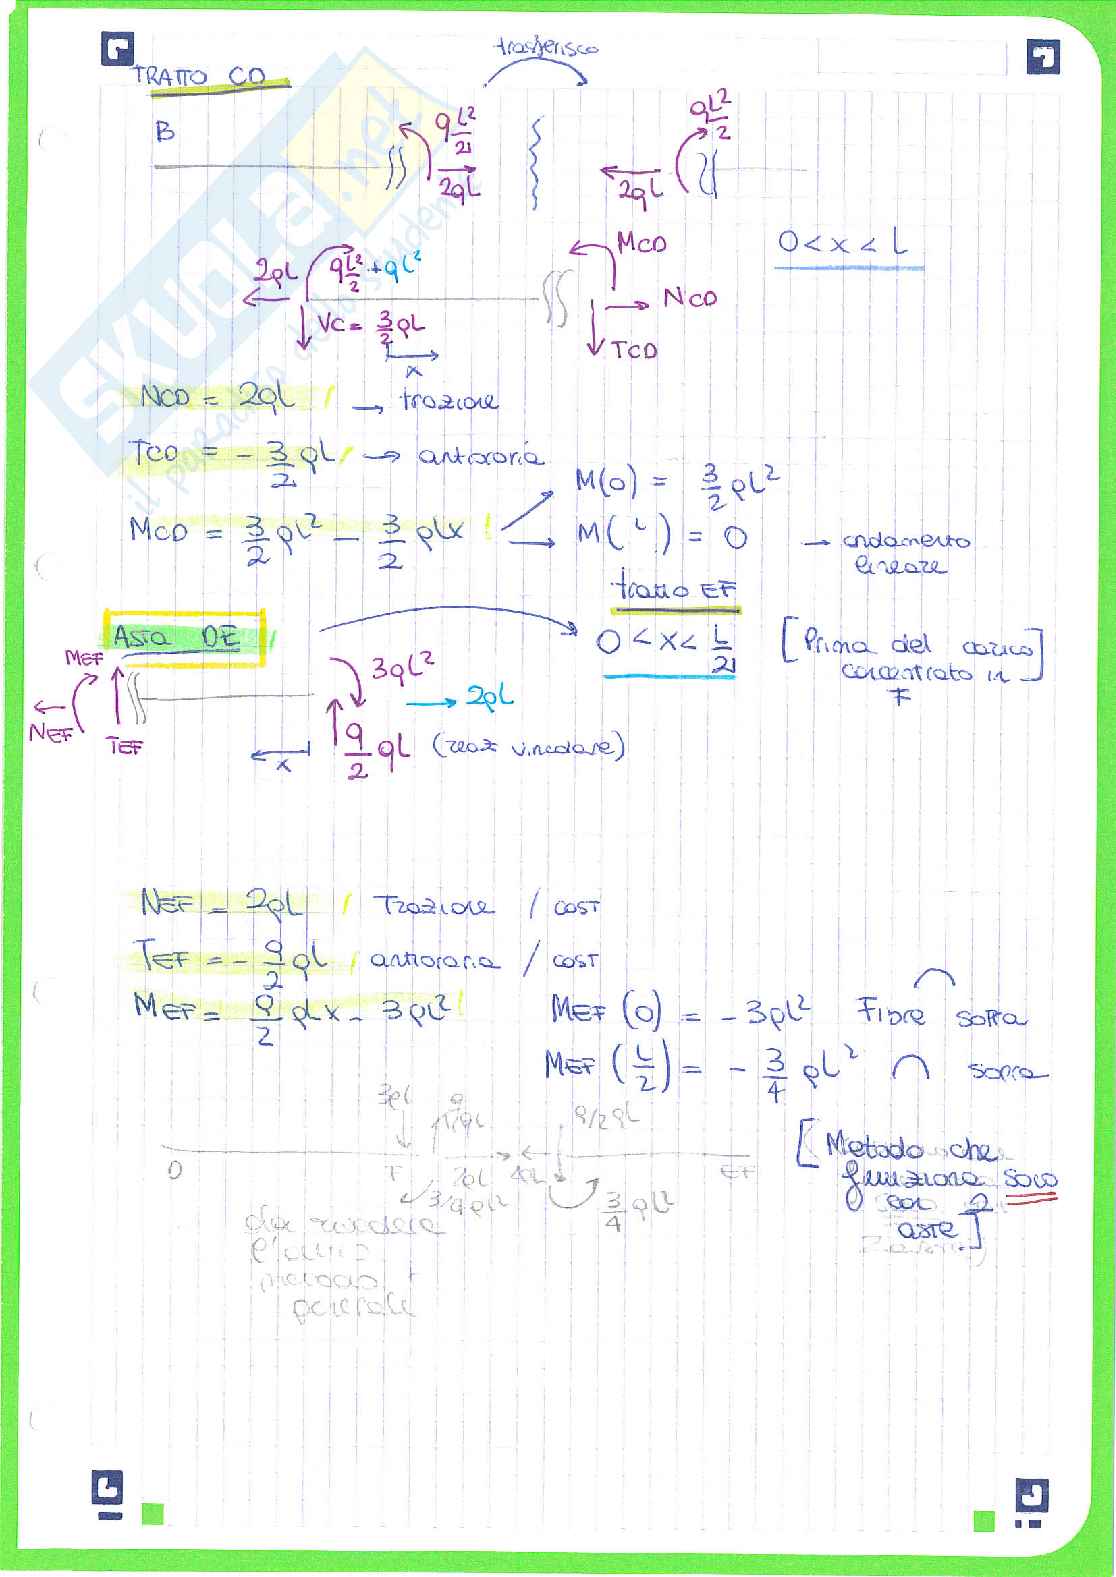 trasferisco
TRATTO CD
B
qL²/2
2qL
qL²/2
2qL
0 < x < L
2qL
qL²/2 + qL²
Vc = 3/2 qL
x
MCD
NCD
TCD
NCD = 2qL → trazione
TCD = - 3/2 qL → antioraria
MCD = 3/2 qL² - 3/2 qLx
M(0) = 3/2 qL²
M(L) = 0 → andamento lineare
tratto EF
Asta DE
0 < x < L/2
[Prima del carico
concentrato in
F]
MEF
NEF
TEF
3qL²
2qL
9/2 qL (reaz vincolare)
x
NEF = 2qL Trazione / cost
TEF = - 9/2 qL antioraria / cost
MEF = 9/2 qLx - 3qL²
MEF (0) = - 3qL² Fibre sopra
MEF (L/2) = - 3/4 qL² sopra
3qL
9/2 qL
D
F
2qL
EF
3/4 qL²
3/4 qL²
[Metodo che
funziona solo
con 2
aste]
da rivedere
metodo +
generale
skuola.net
il paradiso dello studente